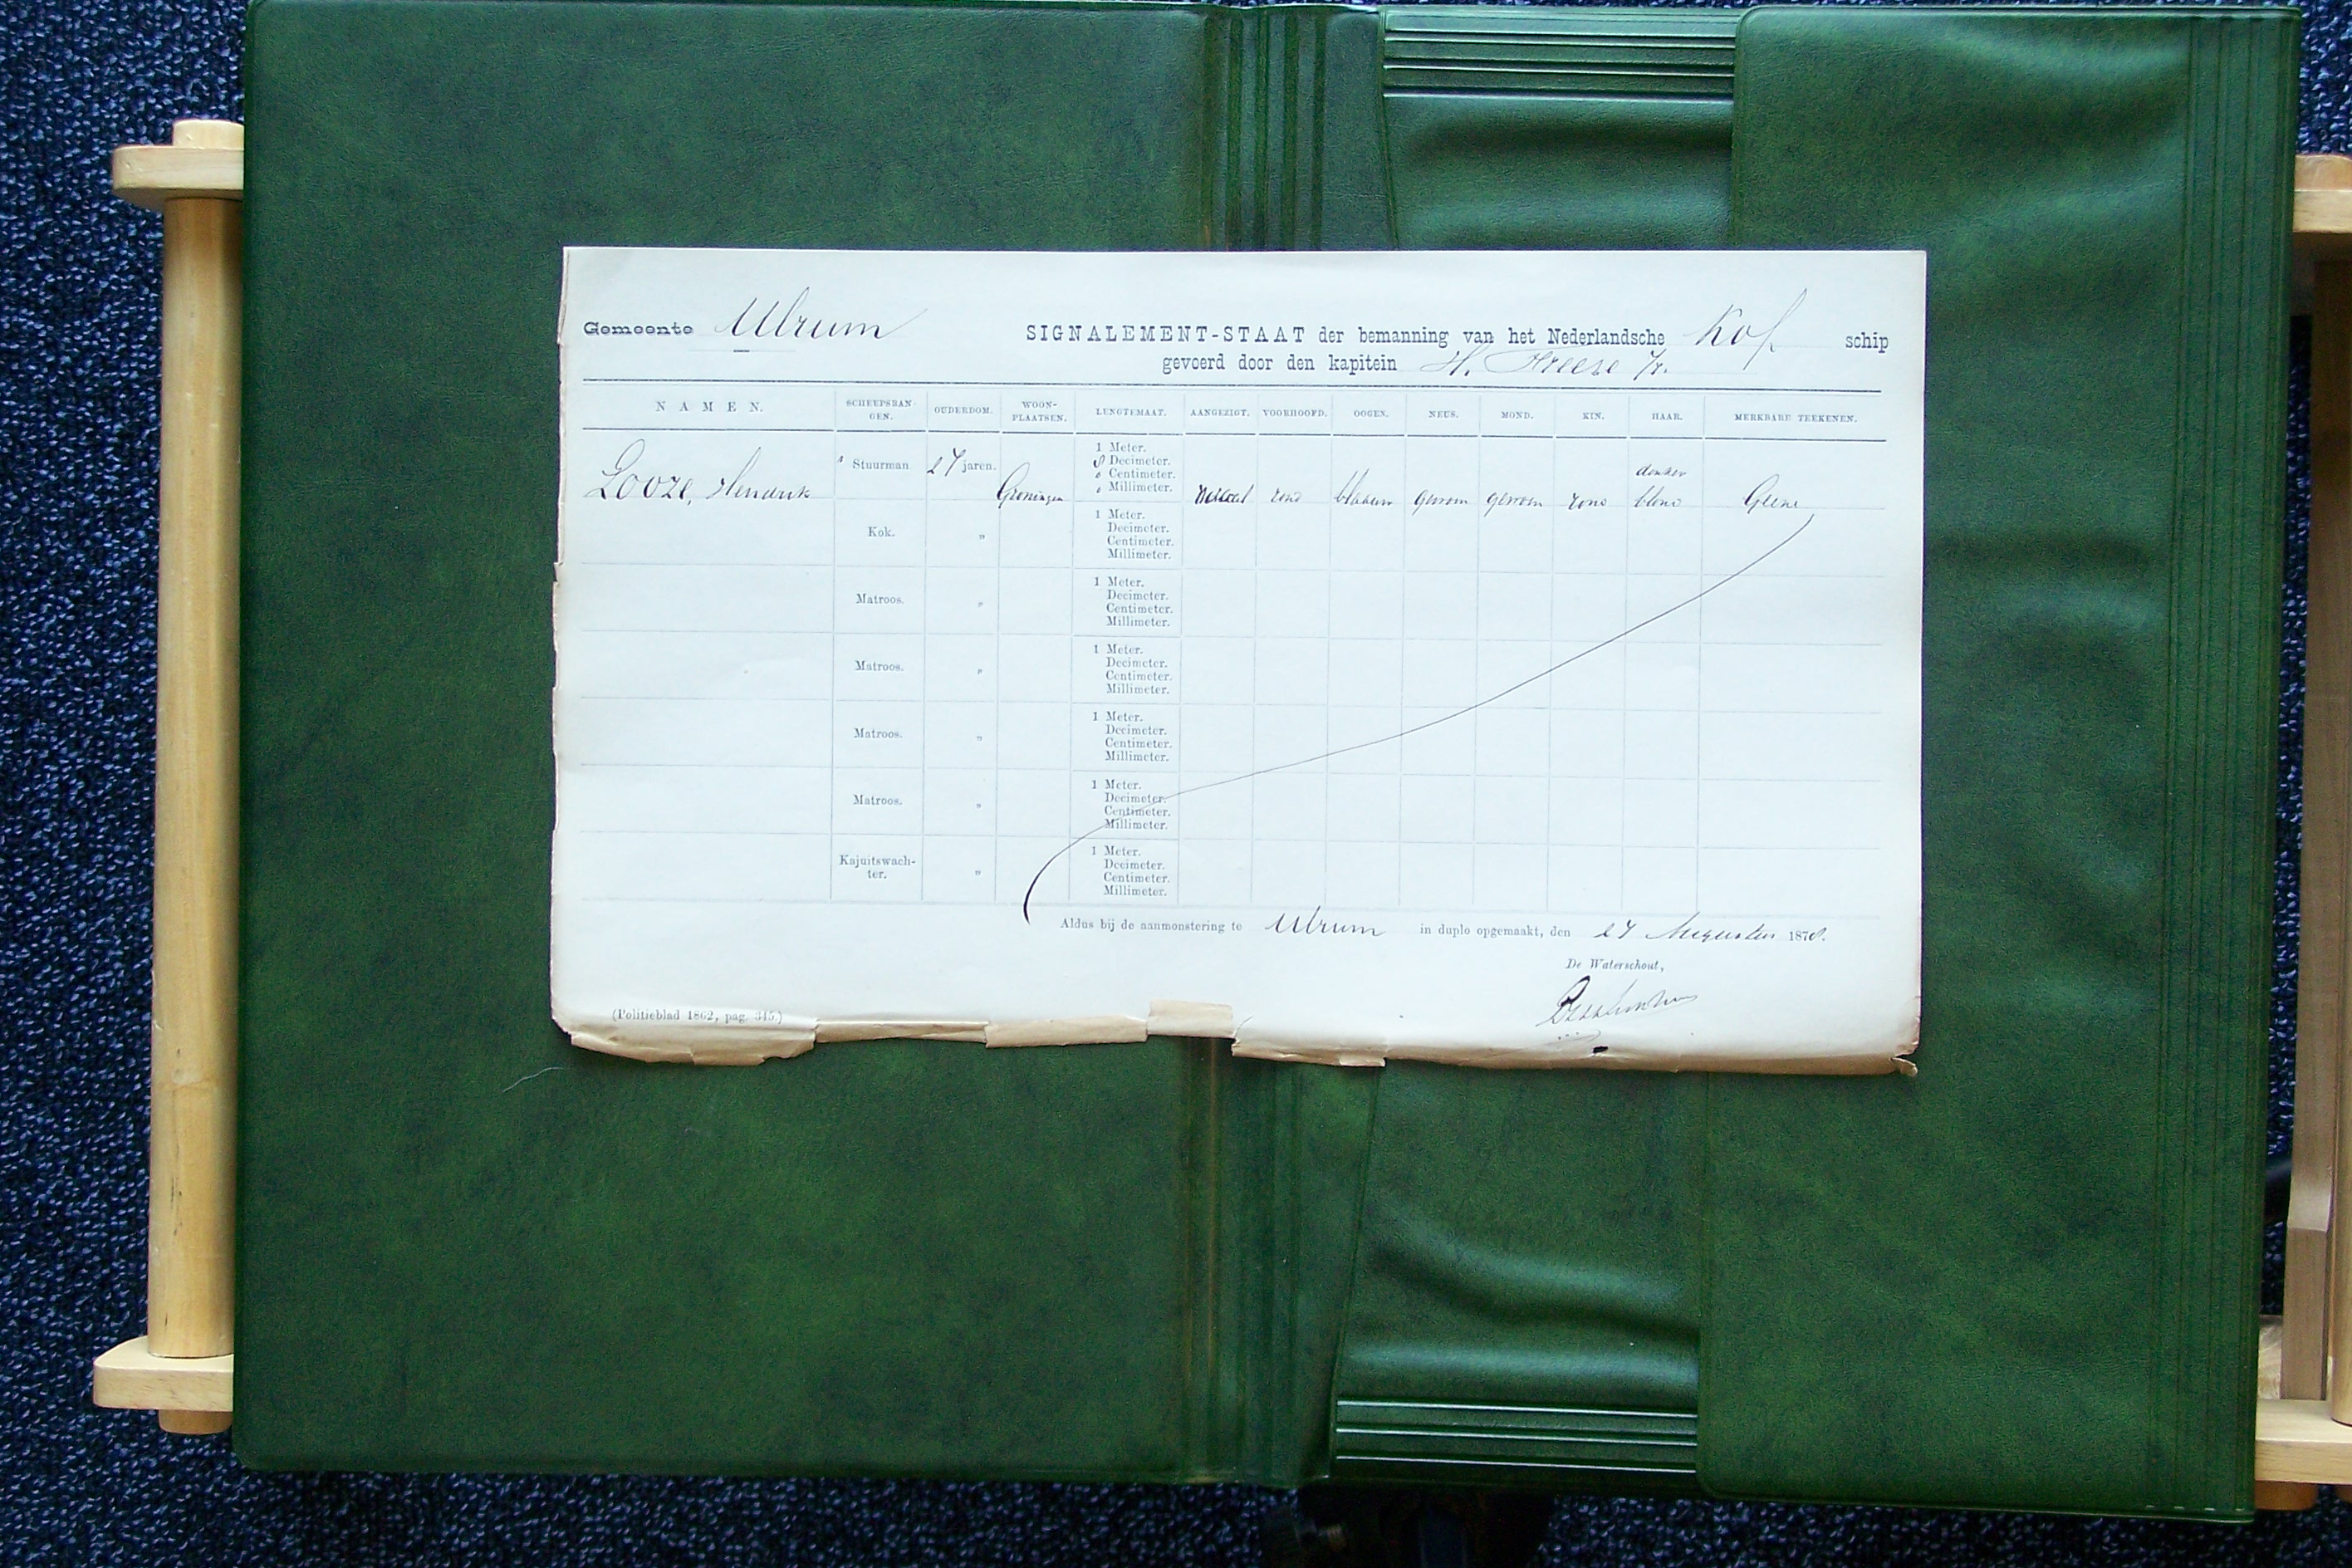 Gemeente Ulrum
SIGNALEMENT-STAAT der bemanning van het Nederlandsche Kof schip
gevoerd door den kapitein H. Freese Jr.
NAMEN. SCHEEPSRANGEN. OUDERDOM. WOONPLAATSEN. LENGTEMAAT. AANGEZIGT. VOORHOOFD. OOGEN. NEUS. MOND. KIN. HAAR. MERKBARE TEEKENEN.
Looze, Hendrik Stuurman 27 jaren. Groningen 1 Meter. 8 Decimeter. " Centimeter. " Millimeter. rond blaauw gewoon gewoon rond donker blond Geene
Kok. " 1 Meter. Decimeter. Centimeter. Millimeter.
Matroos. " 1 Meter. Decimeter. Centimeter. Millimeter.
Matroos. " 1 Meter. Decimeter. Centimeter. Millimeter.
Matroos. " 1 Meter. Decimeter. Centimeter. Millimeter.
Matroos. " 1 Meter. Decimeter. Centimeter. Millimeter.
Kajuitswachter. " 1 Meter. Decimeter. Centimeter. Millimeter.
Aldus bij de aanmonstering te Ulrum in duplo opgemaakt, den 27 Augustus 1878.
De Waterschout,
(Politieblad 1862, pag. 345.)